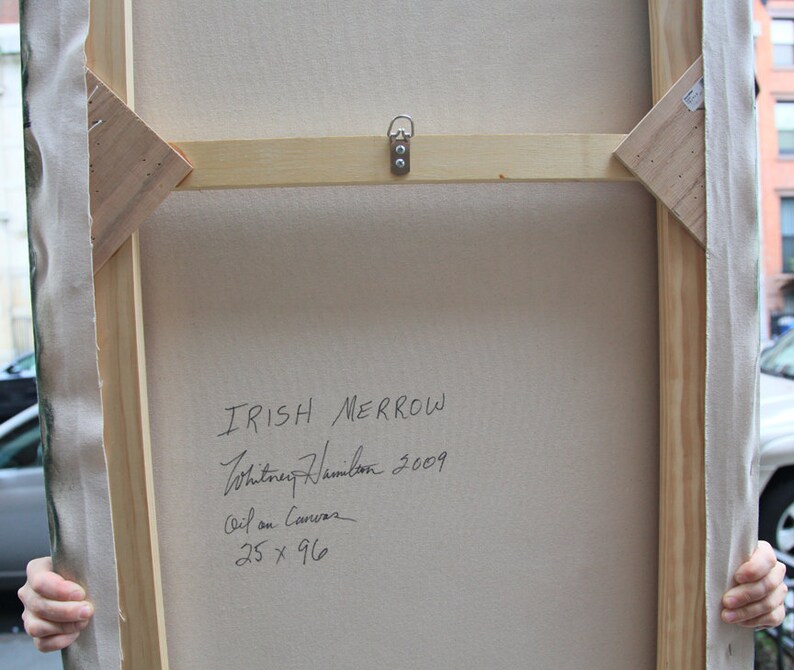 IRISH MERROW
Whitney Hamilton 2009
Oil on Canvas
25 x 96